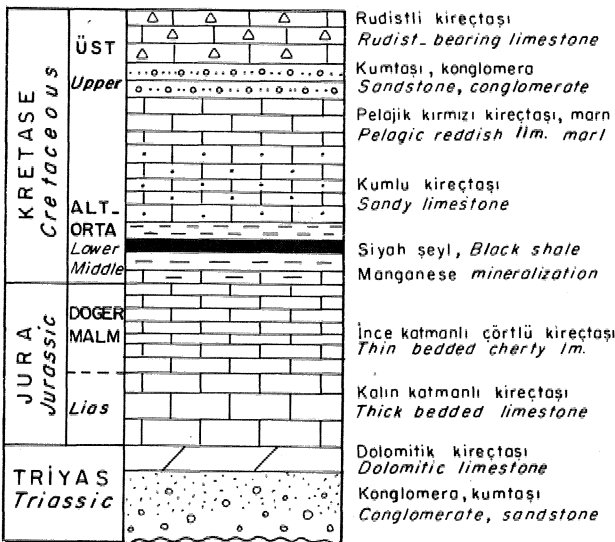 KRETASE
Cretaceous
ÜST
Upper
ALT-
ORTA
Lower
Middle
JURA
Jurassic
DOGER
MALM
Lias
TRİYAS
Triassic
Rudistli kireçtaşı
Rudist-bearing limestone
Kumtaşı, konglomera
Sandstone, conglomerate
Pelajik kırmızı kireçtaşı, marn
Pelagic reddish lim. marl
Kumlu kireçtaşı
Sandy limestone
Siyah şeyl, Black shale
Manganese mineralization
İnce katmanlı çörtlü kireçtaşı
Thin bedded cherty lm.
Kalın katmanlı kireçtaşı
Thick bedded limestone
Dolomitik kireçtaşı
Dolomitic limestone
Konglomera, kumtaşı
Conglomerate, sandstone